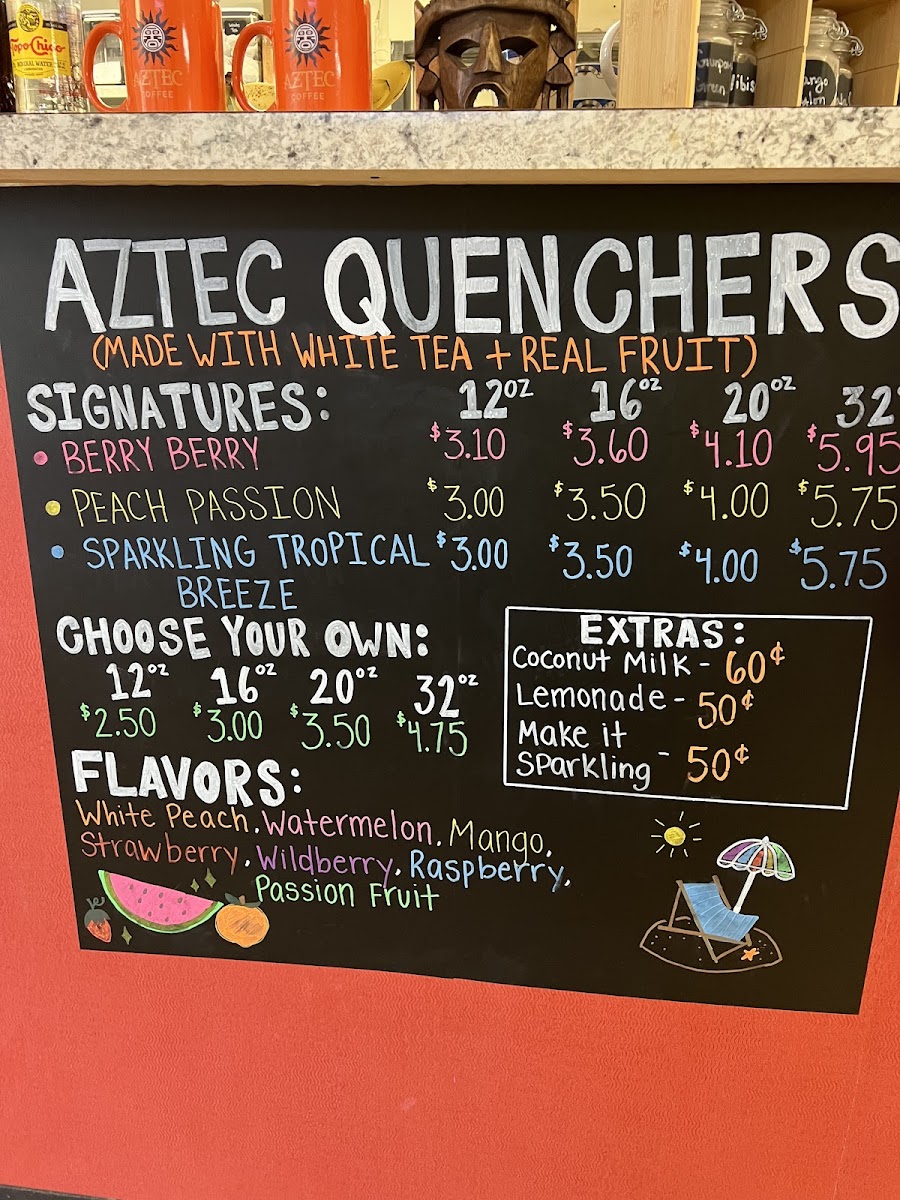 Topo Chico
MINERAL WATER
AZTEC
COFFEE
AZTEC
COFFEE
AZTEC QUENCHERS
(MADE WITH WHITE TEA + REAL FRUIT)
SIGNATURES: 12oz 16oz 20oz 32
• BERRY BERRY $3.10 $3.60 $4.10 $5.95
• PEACH PASSION $3.00 $3.50 $4.00 $5.75
• SPARKLING TROPICAL $3.00 $3.50 $4.00 $5.75
BREEZE
CHOOSE YOUR OWN:
12oz 16oz 20oz 32oz
$2.50 $3.00 $3.50 $4.75
EXTRAS:
Coconut Milk - 60¢
Lemonade - 50¢
Make it
Sparkling - 50¢
FLAVORS:
White Peach, Watermelon, Mango,
Strawberry, Wildberry, Raspberry,
Passion Fruit